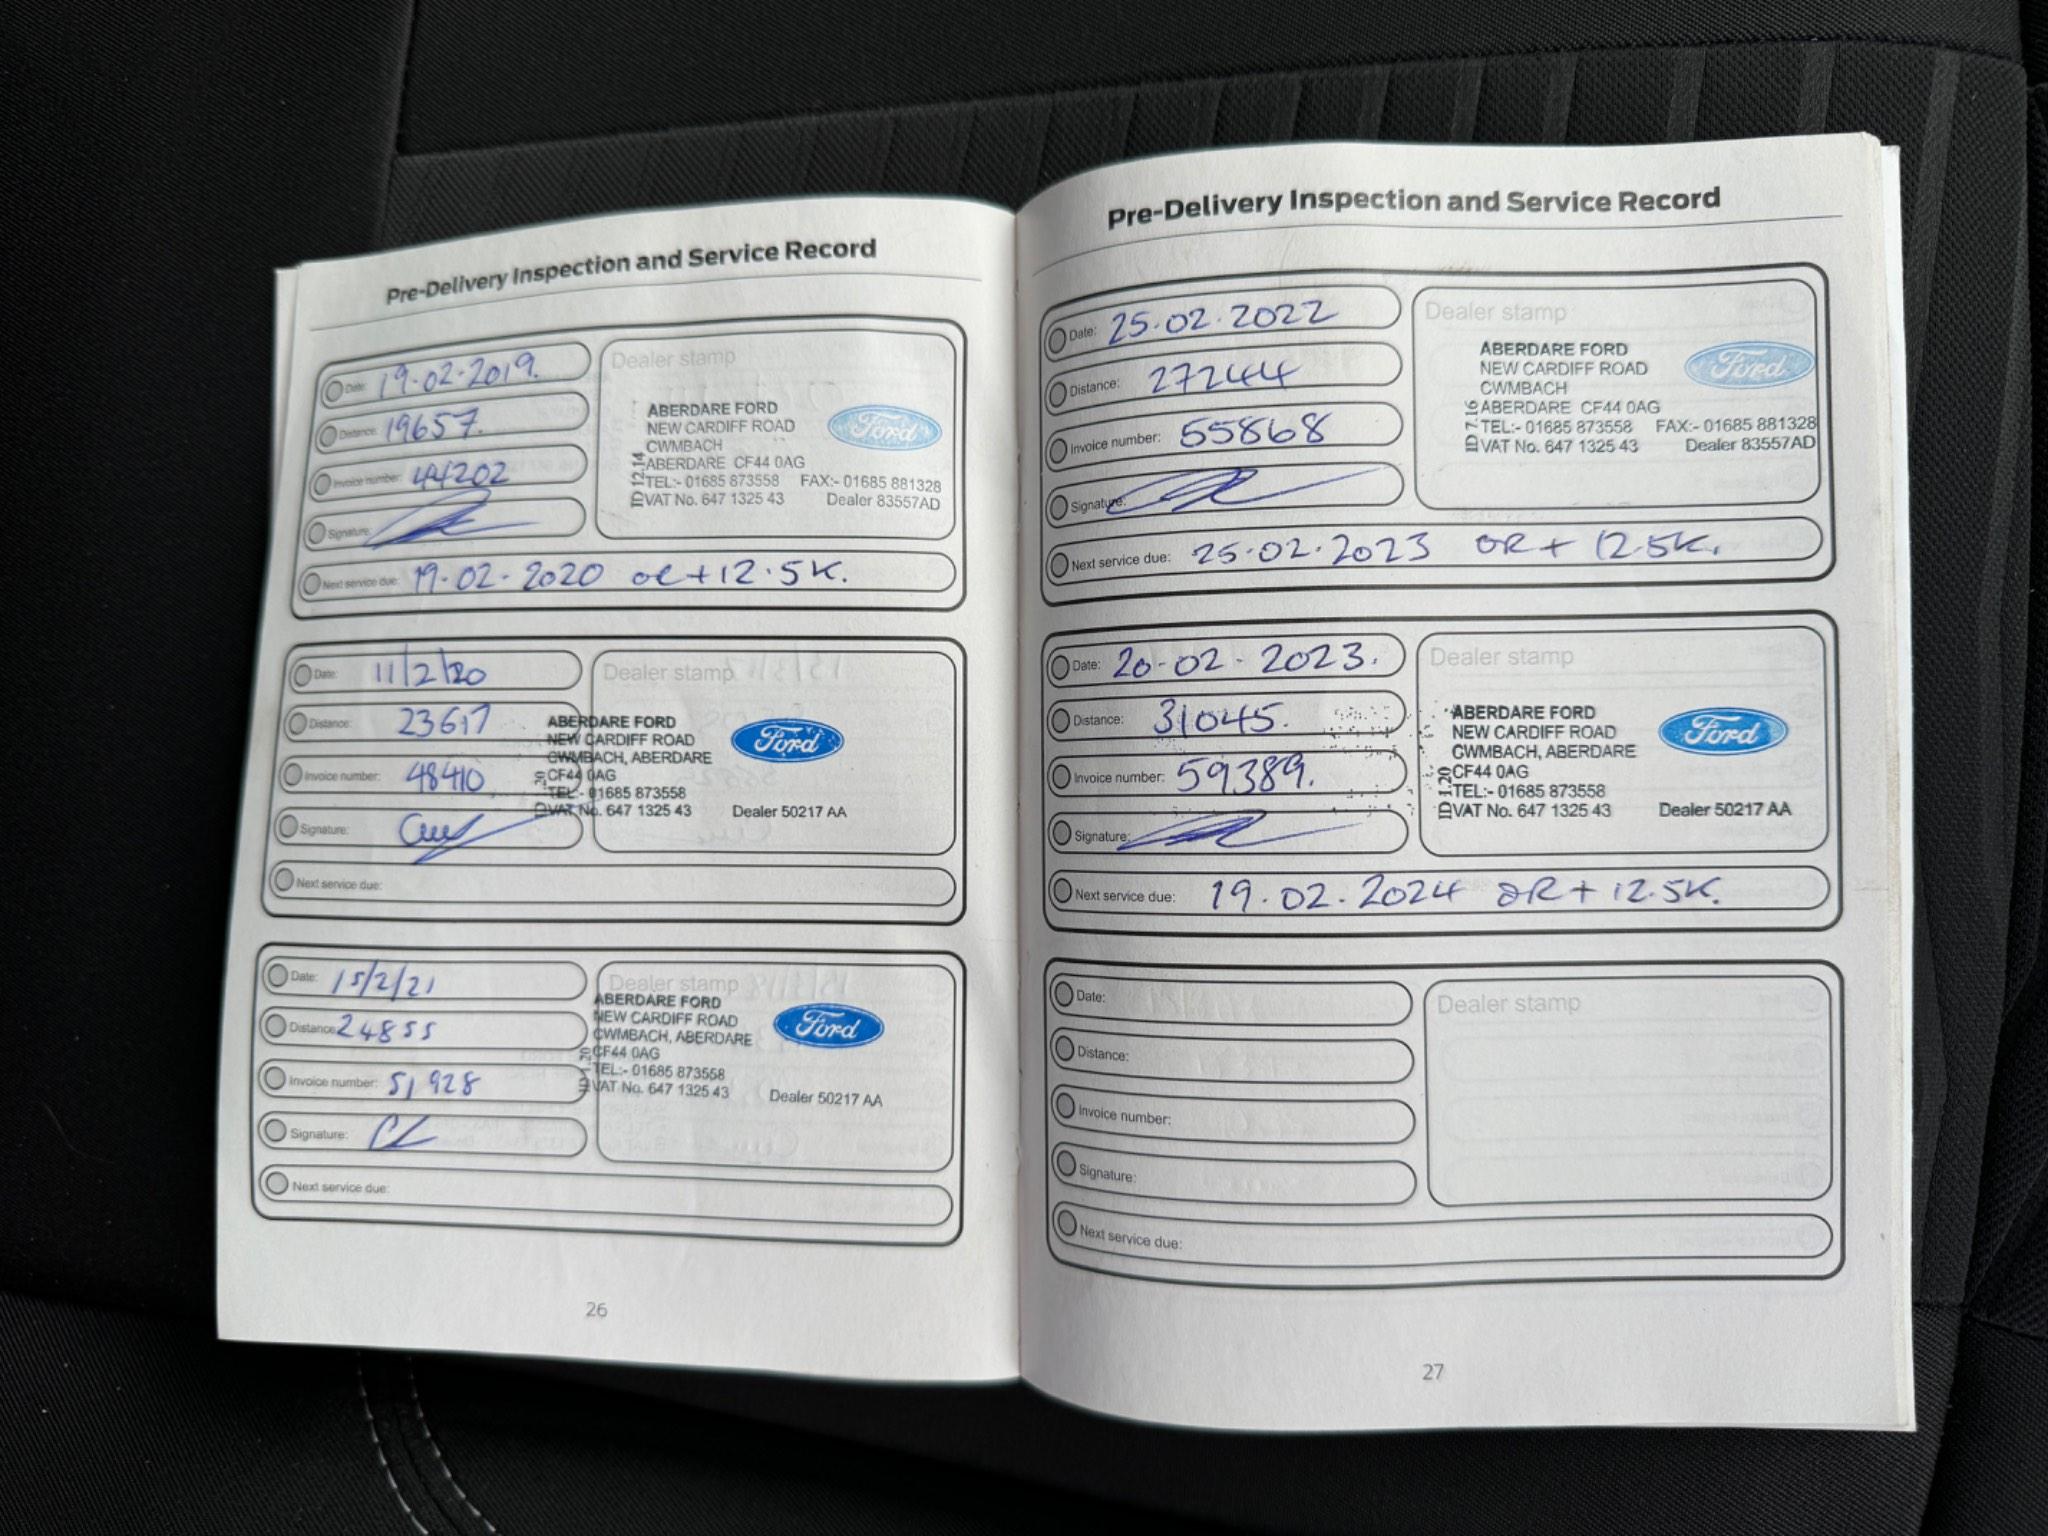 Pre-Delivery Inspection and Service Record
Date: 19.02.2019.
Distance: 19657.
Invoice number: 44202
Signature:
Next service due: 19.02.2020 or +12.5K.
Dealer stamp
ABERDARE FORD
NEW CARDIFF ROAD
CWMBACH
ABERDARE CF44 0AG
TEL:- 01685 873558 FAX:- 01685 881328
VAT No. 647 1325 43 Dealer 83557AD
ID 12.14
Ford
Date: 11/2/20
Distance: 23617
Invoice number: 48410
Signature:
Next service due:
Dealer stamp
ABERDARE FORD
NEW CARDIFF ROAD
CWMBACH, ABERDARE
CF44 0AG
TEL:- 01685 873558
VAT No. 647 1325 43 Dealer 50217 AA
Ford
Date: 15/2/21
Distance: 24855
Invoice number: 51928
Signature:
Next service due:
Dealer stamp
ABERDARE FORD
NEW CARDIFF ROAD
CWMBACH, ABERDARE
CF44 0AG
TEL:- 01685 873558
VAT No. 647 1325 43 Dealer 50217 AA
ID 1.20
Ford
26
Pre-Delivery Inspection and Service Record
Date: 25.02.2022
Distance: 27244
Invoice number: 55868
Signature:
Next service due: 25.02.2023 OR + 12.5K.
Dealer stamp
ABERDARE FORD
NEW CARDIFF ROAD
CWMBACH
ABERDARE CF44 0AG
TEL:- 01685 873558 FAX:- 01685 881328
VAT No. 647 1325 43 Dealer 83557AD
ID 7.16
Ford
Date: 20-02-2023.
Distance: 31045.
Invoice number: 59389.
Signature:
Next service due: 19.02.2024 OR + 12.5K.
Dealer stamp
ABERDARE FORD
NEW CARDIFF ROAD
CWMBACH, ABERDARE
CF44 0AG
TEL:- 01685 873558
VAT No. 647 1325 43 Dealer 50217 AA
ID 1.20
Ford
Date:
Distance:
Invoice number:
Signature:
Next service due:
Dealer stamp
27